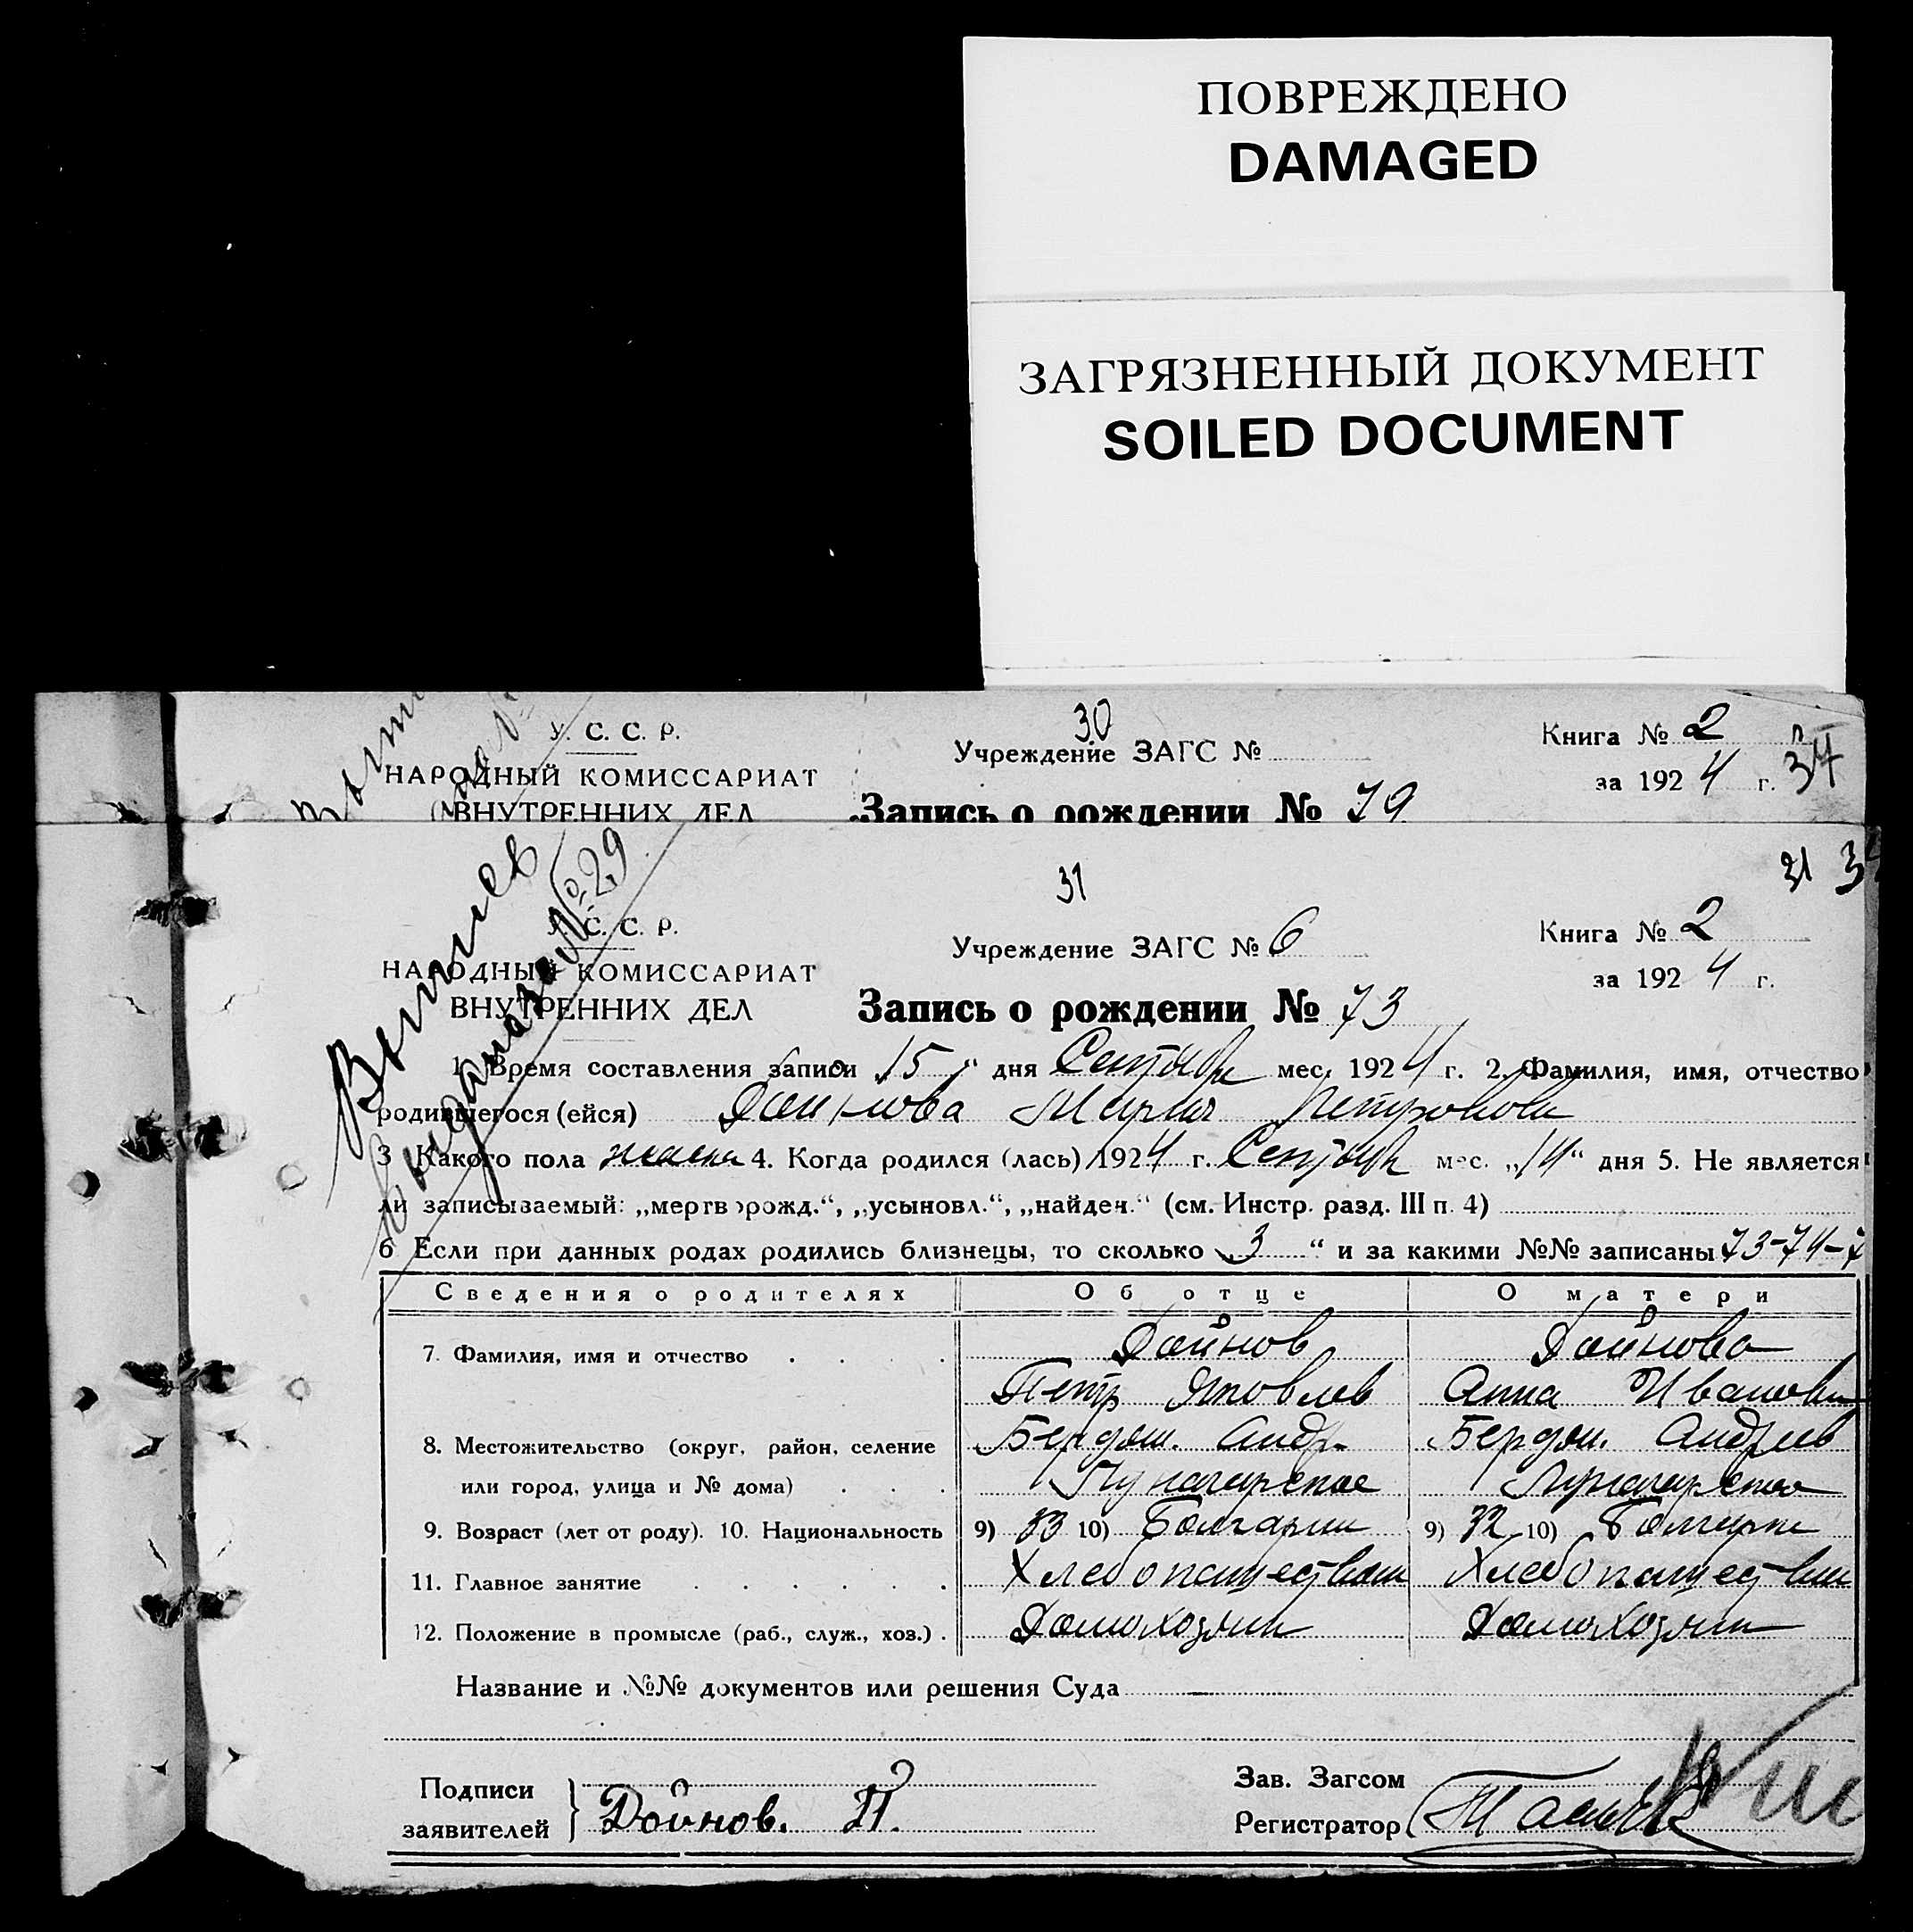 ПОВРЕЖДЕНО
DAMAGED
ЗАГРЯЗНЕННЫЙ ДОКУМЕНТ
SOILED DOCUMENT
30
У. С. С. Р.
Учреждение ЗАГС №
Книга № 2
34
НАРОДНЫЙ КОМИССАРИАТ
за 1924 г.
ВНУТРЕННИХ ДЕЛ
Запись о рождении № 79
31
31
№ 29
С. С. Р.
Учреждение ЗАГС № 6
Книга № 2
НАРОДНЫЙ КОМИССАРИАТ
за 1924 г.
ВНУТРЕННИХ ДЕЛ
Запись о рождении № 73
1. Время составления записи „15“ дня Сентябр мес. 1924 г. 2. Фамилия, имя, отчество
родившегося (ейся) Дойнова Мария Петровна
3 Какого пола женск 4. Когда родился (лась) 1924 г. Сентябр мес. „14“ дня 5. Не является
ли записываемый: „мертворожд.“, „усыновл.“, „найден.“ (см. Инстр. разд. III п. 4)
6 Если при данных родах родились близнецы, то сколько „3“ и за какими №№ записаны 73-74-7
Сведения о родителях Об отце О матери
7. Фамилия, имя и отчество Дойнов Дойнова
Петр Яковлев Анна Иванов
8. Местожительство (округ, район, селение Бердян. Андр. Бердян. Андреев
или город, улица и № дома) Луначарское Луначарское
9. Возраст (лет от роду). 10. Национальность 9) 33 10) Болгарин 9) 32 10) Болгарк
11. Главное занятие Хлебопашеством Хлебопашеством
12. Положение в промысле (раб., служ., хоз.) Домохозяин Домохозяин
Название и №№ документов или решения Суда
Подписи
заявителей
Дойнов. П.
Зав. Загсом
Регистратор